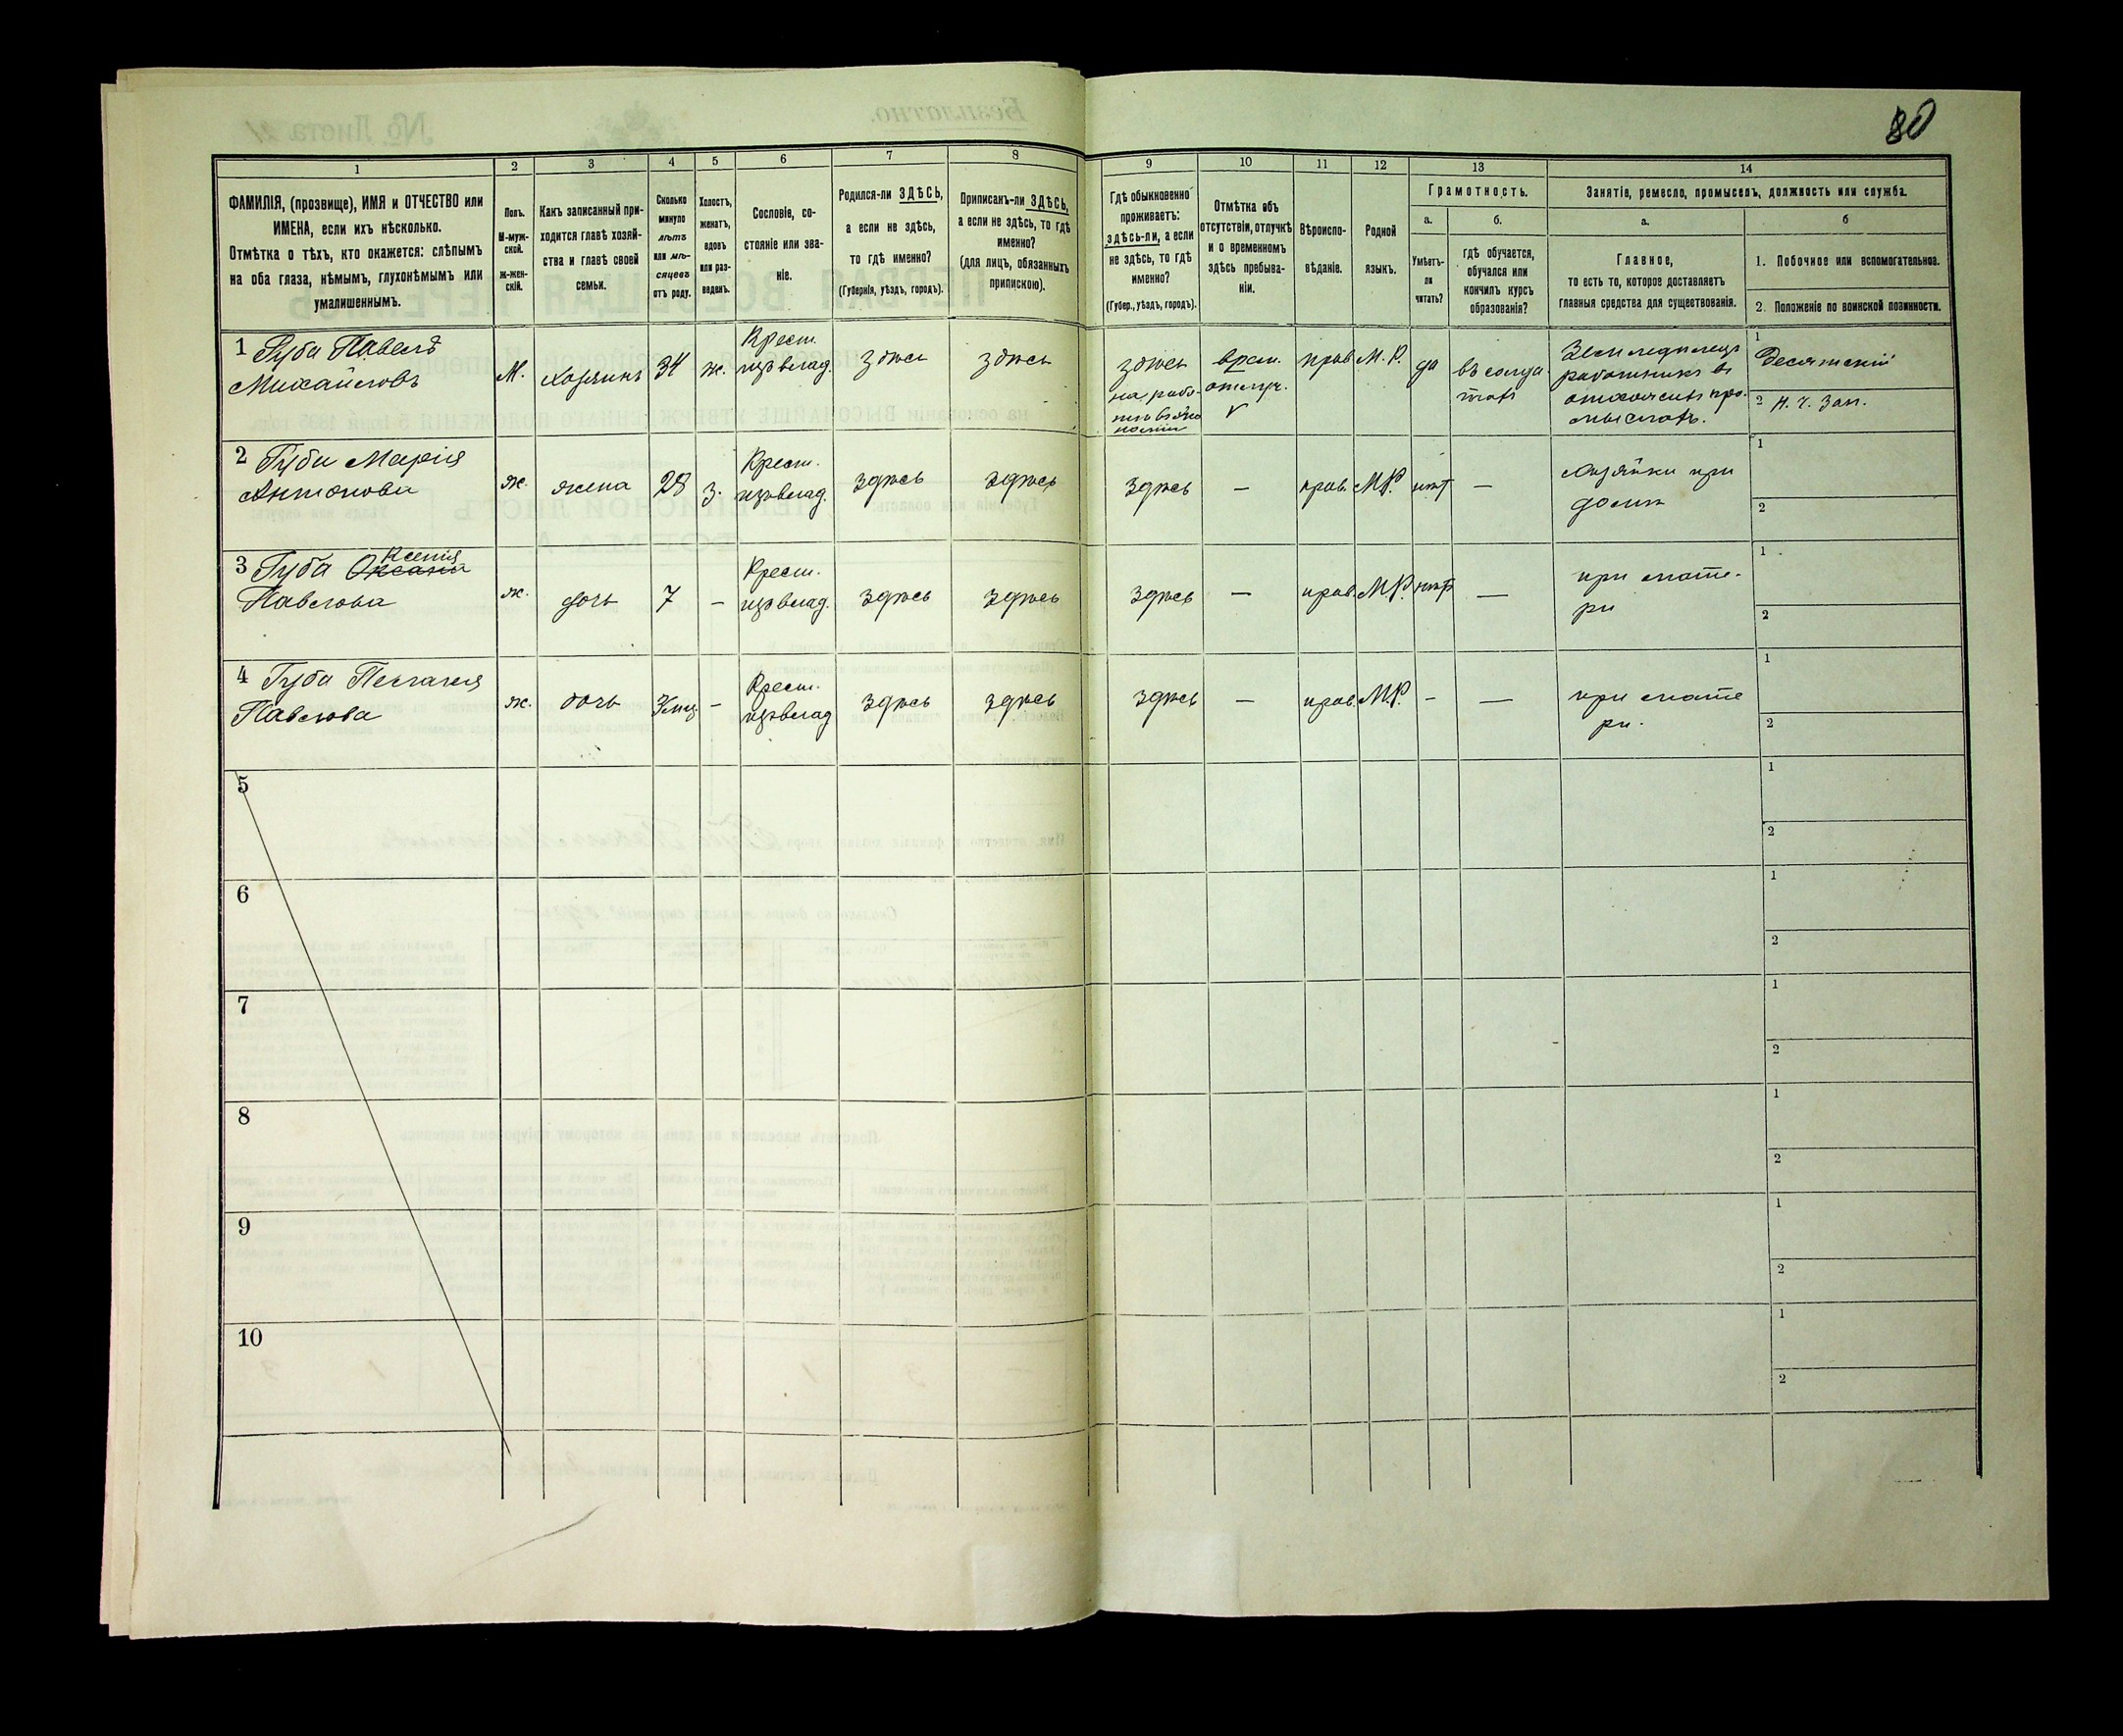 80
1 2 3 4 5 6 7 8 9 10 11 12 13 14
ФАМИЛІЯ, (прозвище), ИМЯ и ОТЧЕСТВО или
ИМЕНА, если ихъ нѣсколько.
Отмѣтка о тѣхъ, кто окажется: слѣпымъ
на оба глаза, нѣмымъ, глухонѣмымъ или
умалишеннымъ.
Полъ.
М-муж-
ской.
Ж-жен-
скій.
Какъ записанный при-
ходится главѣ хозяй-
ства и главѣ своей
семьи.
Сколько
минуло
лѣтъ
или мѣ-
сяцевъ
отъ роду.
Холостъ,
женатъ,
вдовъ
или раз-
веденъ.
Сословіе, со-
стояніе или зва-
ніе.
Родился-ли ЗДѢСЬ,
а если не здѣсь,
то гдѣ именно?
(Губернія, уѣздъ, городъ).
Приписанъ-ли ЗДѢСЬ,
а если не здѣсь, то гдѣ
именно?
(для лицъ, обязанныхъ
припискою).
Гдѣ обыкновенно
проживаетъ:
здѣсь-ли, а если
не здѣсь, то гдѣ
именно?
(Губер., уѣздъ, городъ).
Отмѣтка объ
отсутствіи, отлучкѣ
и о временномъ
здѣсь пребыва-
ніи.
Вѣроиспо-
вѣданіе.
Родной
языкъ.
Грамотность.
а. б.
Умѣетъ-
ли
читать?
гдѣ обучается,
обучался или
кончилъ курсъ
образованія?
Занятіе, ремесло, промыселъ, должность или служба.
а. б
Главное,
то есть то, которое доставляетъ
главныя средства для существованія.
1. Побочное или вспомогательное.
2. Положеніе по воинской повинности.
1 Губа Павелъ
Михайловъ
М.
хозяинъ
34
ж.
Крест.
изъ влад.
здѣсь
здѣсь
здѣсь
на рабо-
врем.
отлуч.
прав
М. Р.
да
въ солда-
тахъ
Земледѣлецъ
работникъ въ
отхожихъ про-
мыслахъ.
1 Десятскій
2 Н. Ч. Зап.
2 Губа Марія
Антонова
ж.
жена
28
з.
Крест.
изъ влад.
здѣсь
здѣсь
здѣсь
—
прав.
М.Р.
нѣт
—
хозяйка при
домѣ
1
2
3 Губа Оксана Ксенія
Павлова
ж.
дочь
7
–
Крест.
изъ влад.
здѣсь
здѣсь
здѣсь
—
прав.
М.Р.
нѣт
—
при мате-
ри
1
2
4 Губа Пелагея
Павлова
ж.
дочь
–
Крест.
изъ влад
здѣсь
здѣсь
здѣсь
—
прав.
М.Р.
–
—
при мате
ри.
1
2
5
1
2
6
1
2
7
1
2
8
1
2
9
1
2
10
1
2